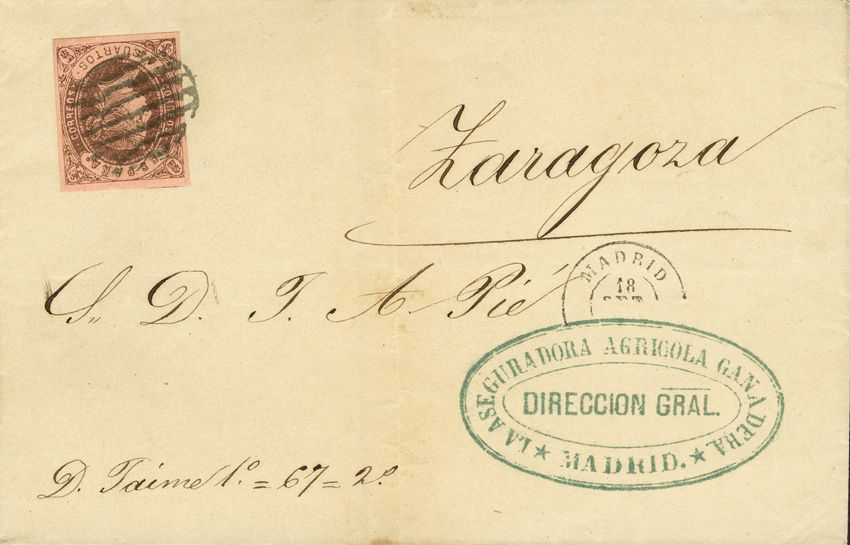 CORREOS
CUARTOS
ESPAÑA
Zaragoza
S. D. J. A Pié
MADRID
18
SET
LA ASEGURADORA AGRICOLA GANADERA
DIRECCION GRAL.
★ MADRID. ★
D. Jaime 1.º = 67 = 2.º